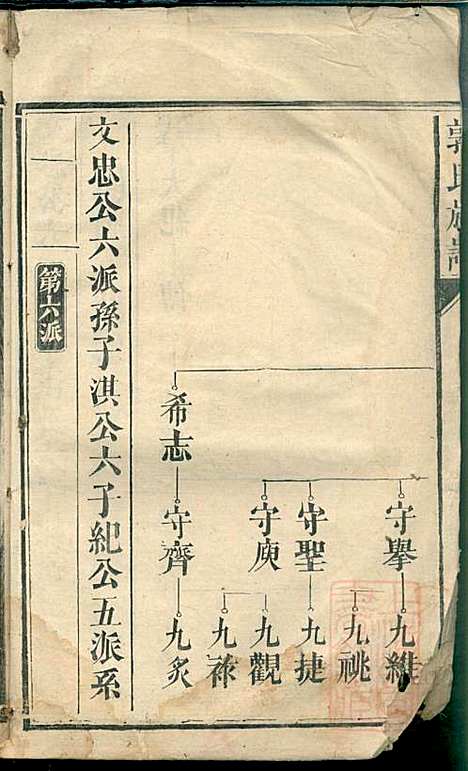 郭氏族譜
守擧 九維
九祧
守聖 九捷
守庾 九觀
九祿
希志 守齊 九炙
文忠公六派孫子淇公六子紀公五派系
第六派